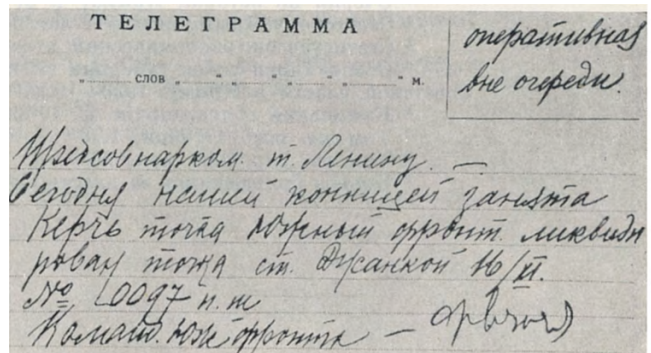 ТЕЛЕГРАММА
оперативная
вне очереди.
„ слов „ „ „ “ м.
Предсовнарком т. Ленину. —
Сегодня нашей конницей занята
Керчь точка Южный фронт ликвиди
рован точка ст. Джанкой 16/XI.
№ 0097 п. ш
Команд. Юж фронта — Фрунзе